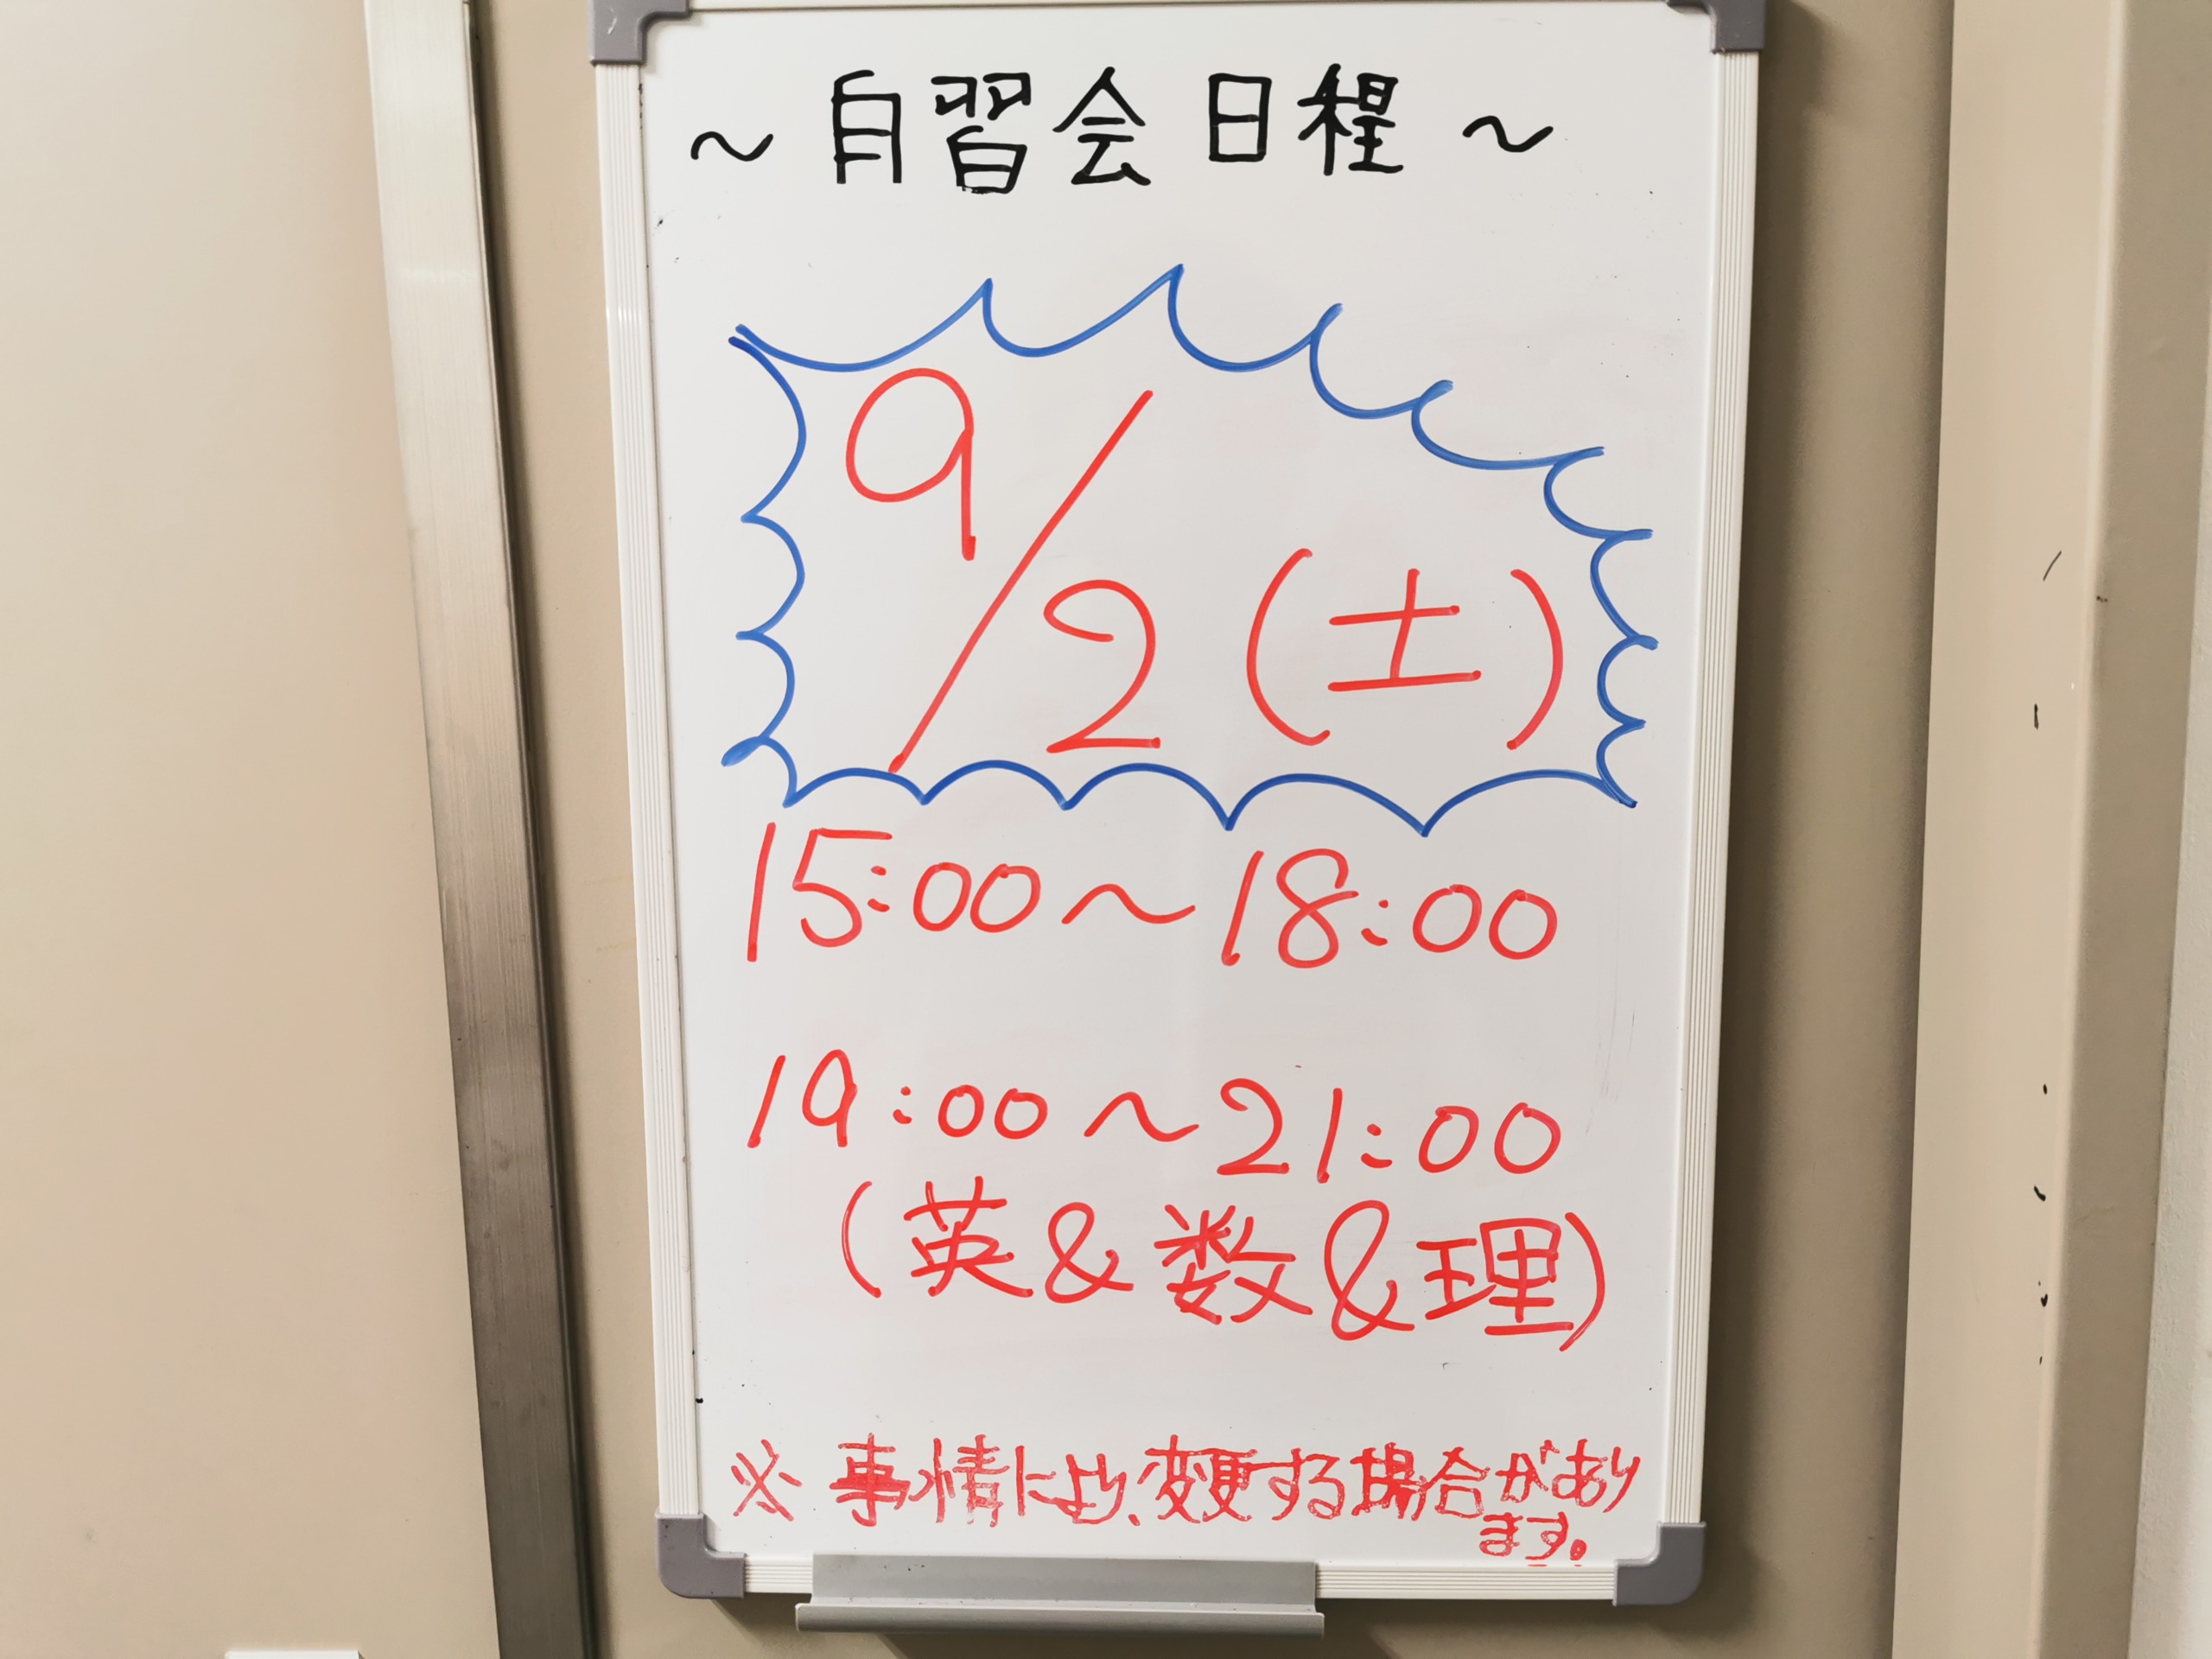 ～自習会日程～
9/2(土)
15:00～18:00
19:00～21:00
(英&数&理)
※事情により、変更する場合があり
ます。